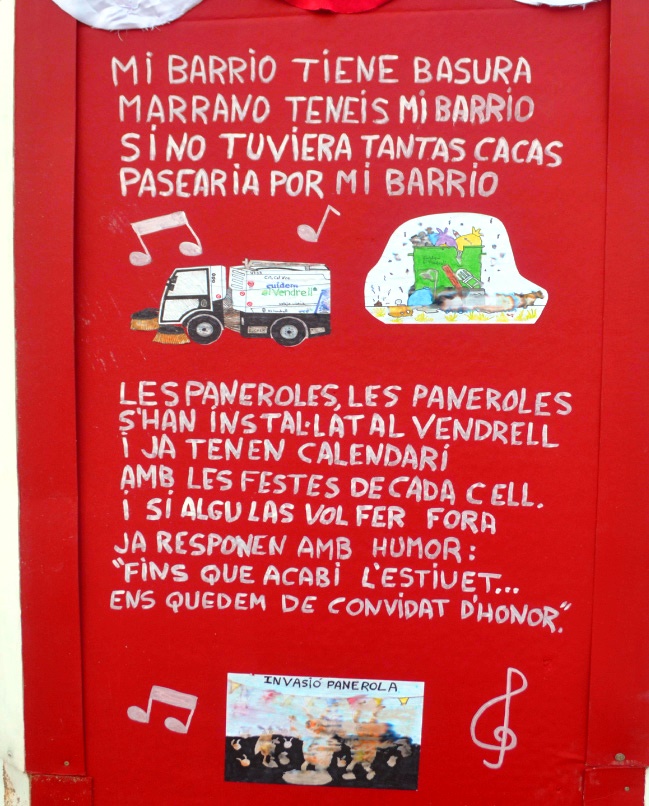 MI BARRIO TIENE BASURA
MARRANO TENEIS MI BARRIO
SI NO TUVIERA TANTAS CACAS
PASEARIA POR MI BARRIO
cuidem
el Vendrell
LES PANEROLES, LES PANEROLES
S'HAN INSTAL·LAT AL VENDRELL
I JA TENEN CALENDARI
AMB LES FESTES DE CADA CELL.
I SI ALGU LAS VOL FER FORA
JA RESPONEN AMB HUMOR:
"FINS QUE ACABI L'ESTIUET...
ENS QUEDEM DE CONVIDAT D'HONOR."
INVASIÓ PANEROLA